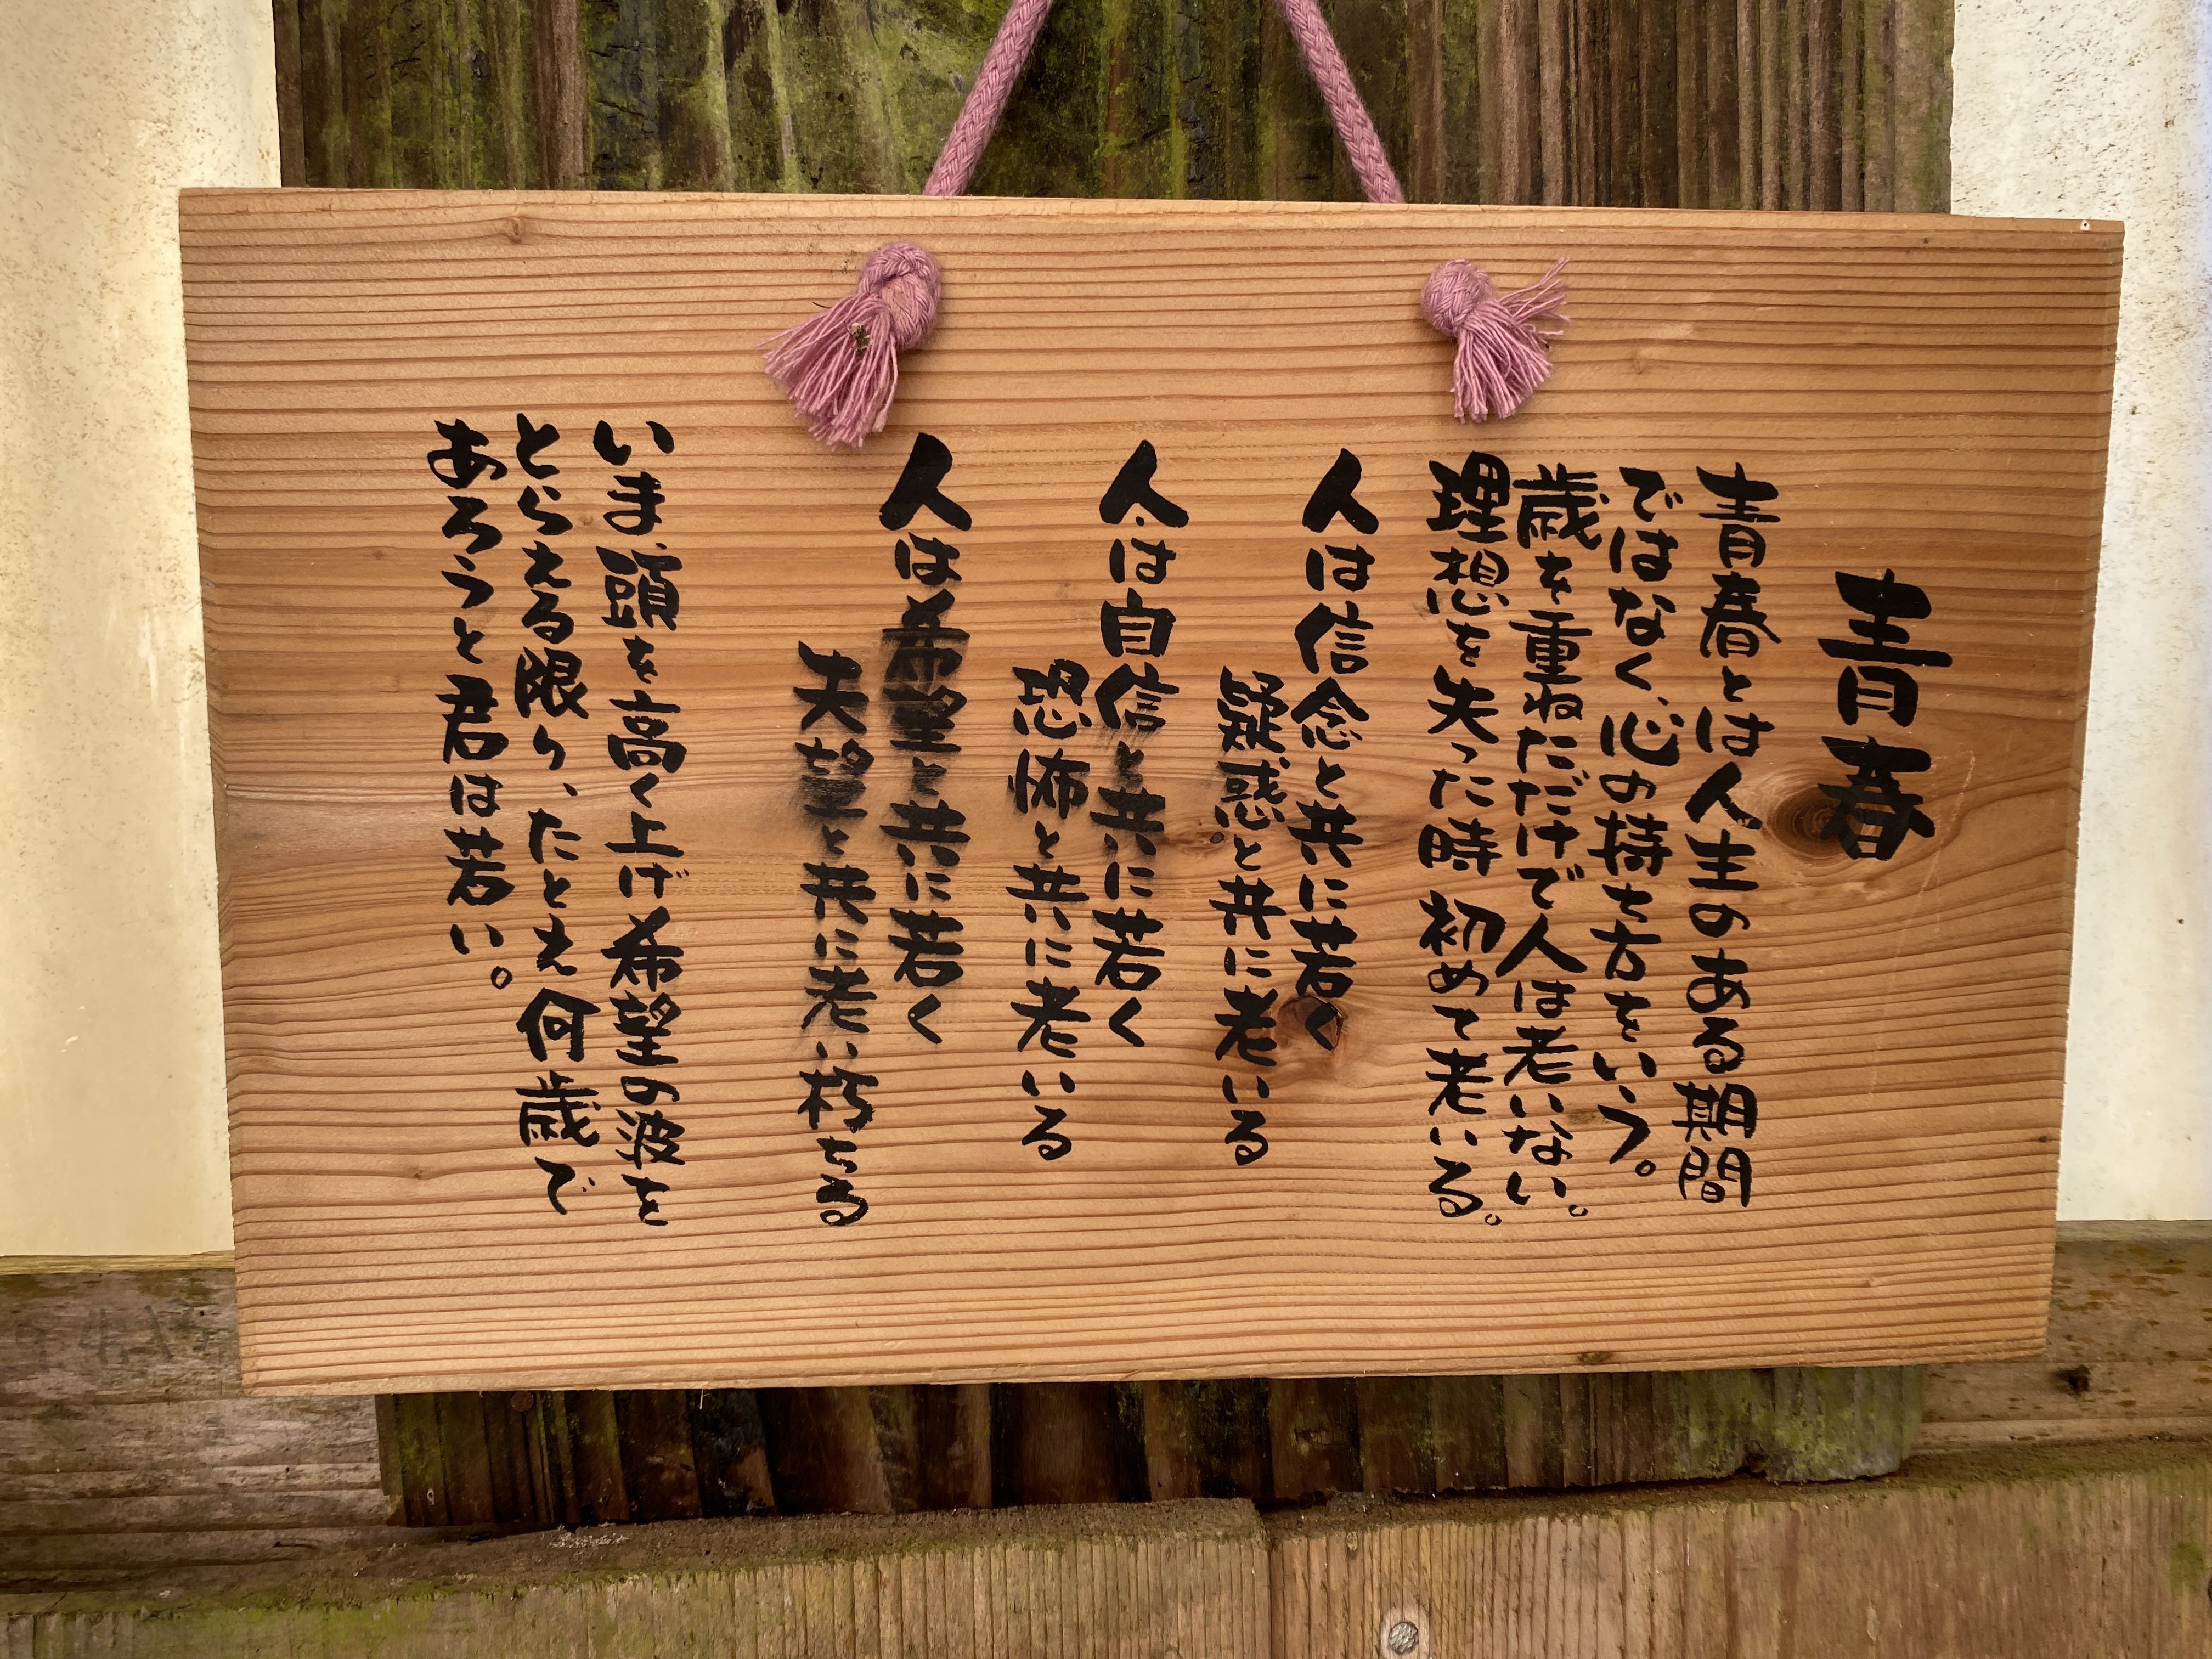 青春
青春とは人生のある期間
ではなく、心の持ち方をいう。
歳を重ねただけで人は老いない。
理想を失った時 初めて老いる。
人は信念と共に若く
疑惑と共に老いる
人は自信と共に若く
恐怖と共に老いる
人は希望と共に若く
失望と共に老い朽ちる
いま、頭を高く上げ希望の波を
とらえる限り、たとえ何歳で
あろうと君は若い。